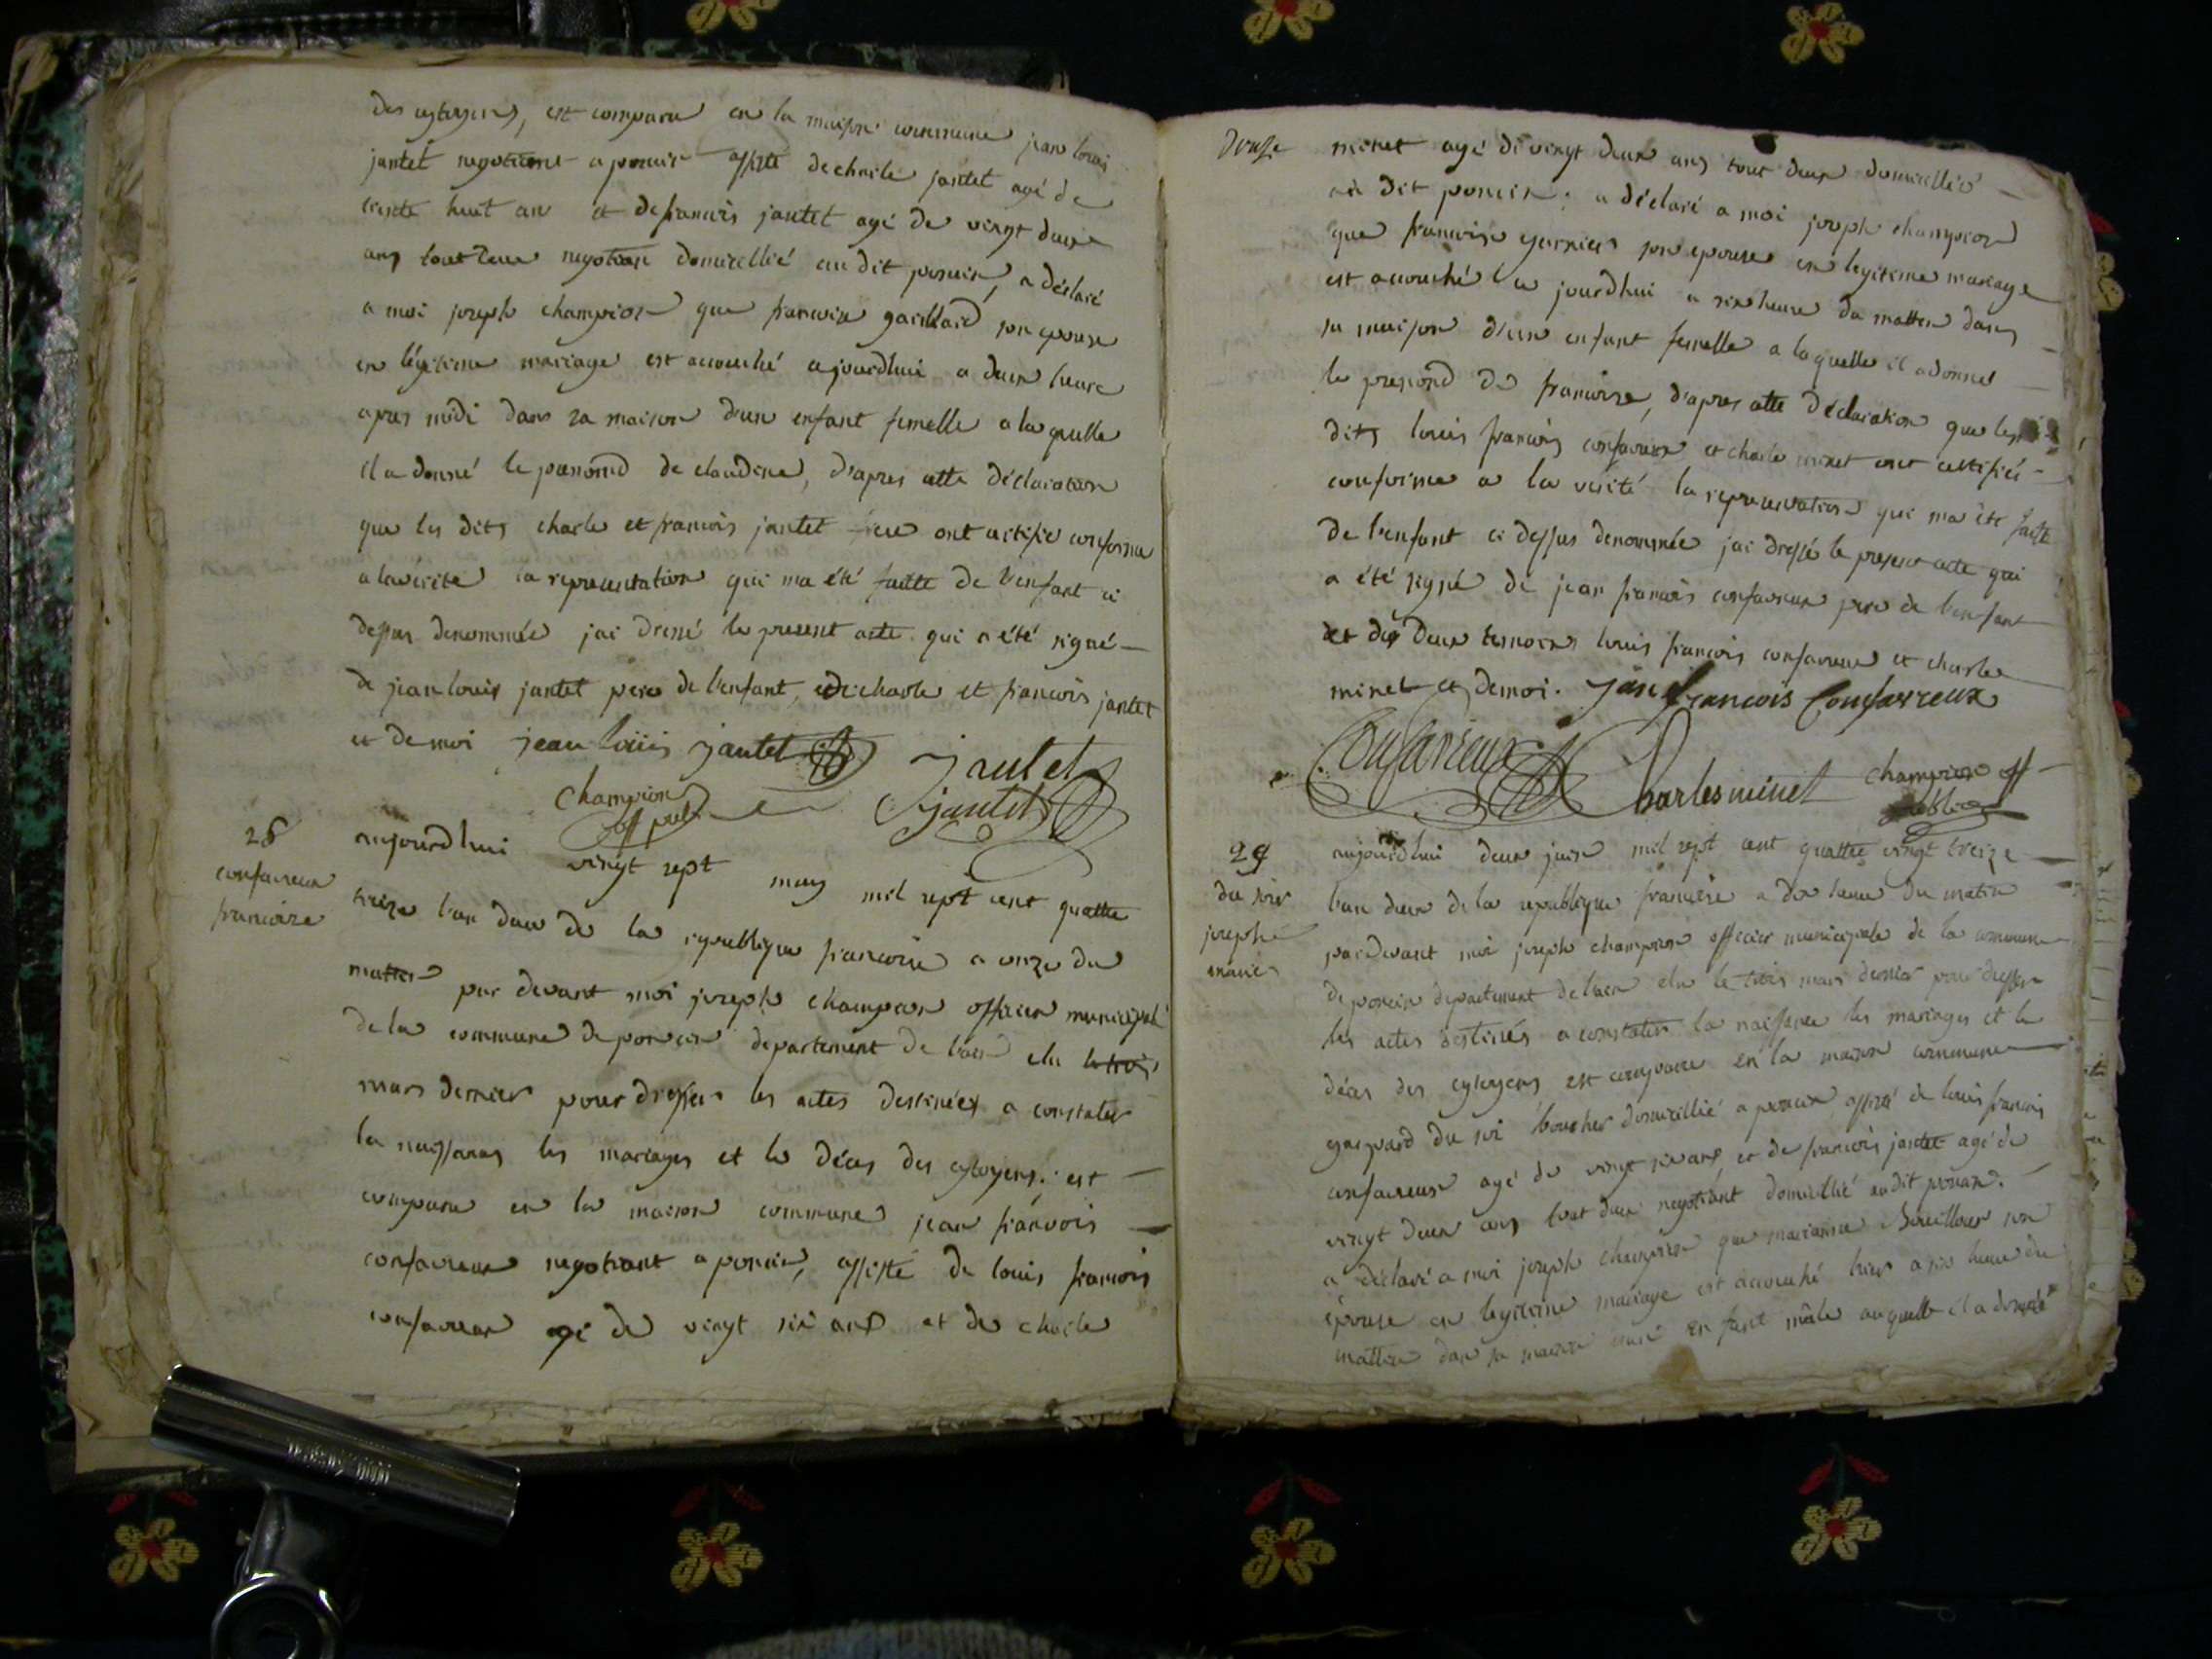 des cytoyens, est comparu en la maison commune jean louis
jantet negotiant a poncin assisté de charle jantet agé de
trente huit an et de francois jantet agé de vingt deux
ans tout deux negotian domicillié au dit poncin, a déclaré
a moi joseph champion que francoise gaillard son epouse
en légitime mariage est accouché ajourdhui a deux heure
apres midi dans sa maison dun enfant femelle a la quelle
il a donné le prenomd de claudine, d'apres cette déclaration
que les dits charle et francois jantet ont certifié conforme
a la vérité la representation qui ma été faitte de l'enfant ci
dessus denommée jai dressé le present acte qui a été signé
de jean louis jantet pere de l'enfant, de charle et francois jantet
et de moi jean loüis jantet jantet
champion jantet
off pub
28
confavreux
francoise
aujourdhui vingt sept may mil sept cent quattre
treize l'an deux de la republique francoise a onze du
mattin par devant moi joseph champion officier municipal
de la commune de poncin departement de l'ain elu le trois
mars dernier pour dresser les actes destinées a constater
la naissances les mariages et le décès des cytoyens; est
comparu en la maison commune jean francois
confavreux negotiant a poncin, assisté de louis francois
confavreux agé de vingt six ans et de charle
douze
minet agé de vingt deux ans tout deux domicillié
au dit poncin; a déclaré a moi joseph champion
que francoise garnier son epouse en legitime mariage
est accouché ce jourdhui a six heure du mattin dans
sa maison d'un enfant femelle a laquelle il a donné
le prenomd de francoise, d'apres cette déclaration que les
dits louis francois confavreux et charle minet ont certifié
conforme a la vérité la representation qui ma été faitte
de l'enfant ci dessus denommée jai dressé le present acte qui
a été signé de jean francois confavreux pere de l'enfant
et des deux temoins louis francois confavreux et charle
minet et de moi. jan francois Confavreux
Confavreux Charles minet champion off
public
29
du soir
joseph
marie
aujourdhui deux juin mil sept cent quattre vingt treize
l'an deux de la republique francoise a dix heure du matin
pardevant moi joseph champion officier municipale de la commune
de poncin departement de l'ain elu le trois mars dernier pour dresser
les actes destinés a constater la naissance les mariages et le
décès des cytoyens est comparu en la maison commune
gaspard du soir boucher domicillié a poncin assisté de louis francois
confavreux agé de vingt six ans et de francois jantet agé de
vingt deux ans tout deux negotiant domicillié au dit poncin.
a déclaré a moi joseph champion que marianne son
épouse en legitime mariage est accouché hier a six heure du
mattin dans sa maison un enfant mâle auquelle il a donné